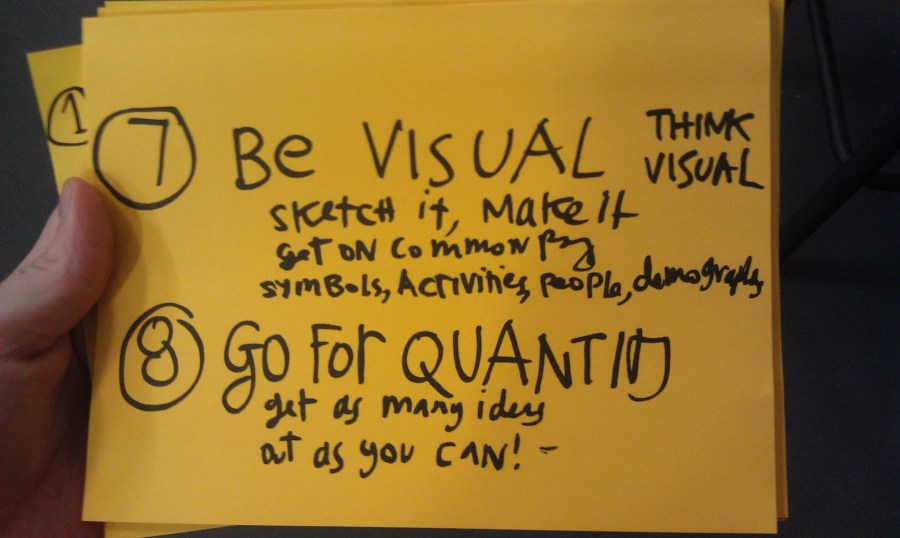 1
7 Be VISUAL THINK VISUAL
sketch it, Make it
get on common pg
symbols, Activities, people, demographs
8 Go For QUANTITY
get as many ideas
out as you CAN! -